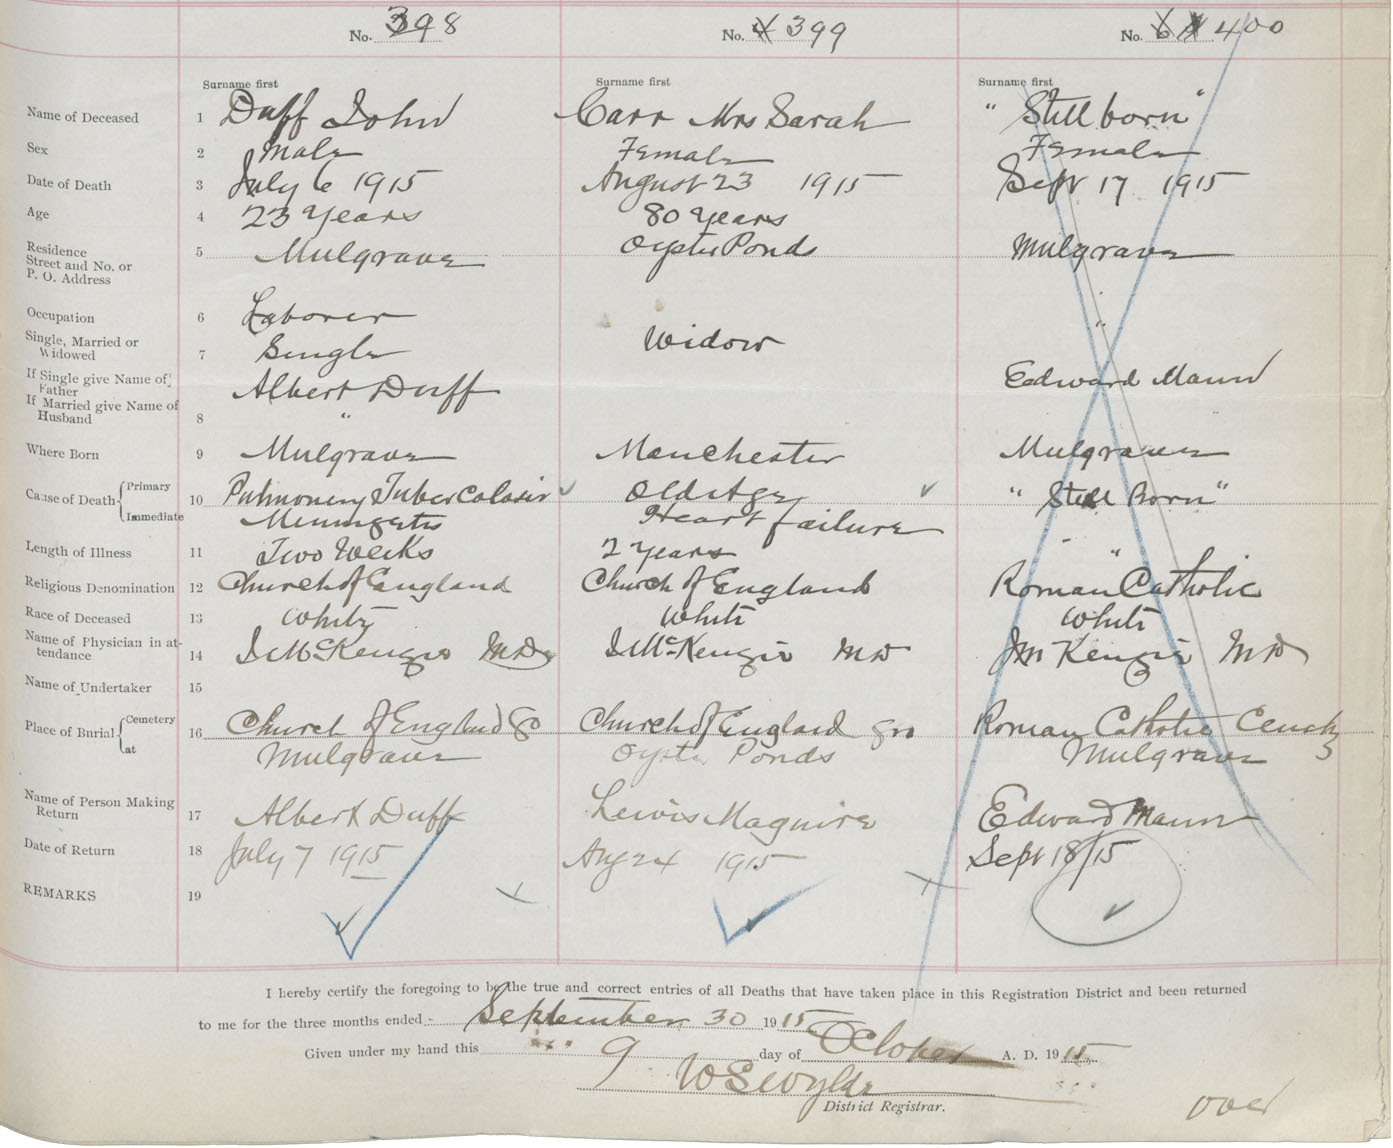 No. 398 No. 399 No. 400
Surname first Surname first Surname first
Name of Deceased 1 Duff John Carr Mrs Sarah "Still born"
Sex 2 Male Female Female
Date of Death 3 July 6 1915 August 23 1915 Sept 17 1915
Age 4 23 Years 80 Years
Residence
Street and No. or
P. O. Address 5 Mulgrave Oyster Ponds Mulgrave
Occupation 6 Laborer "
Single, Married or
Widowed 7 Single Widow
If Single give Name of
Father Albert Duff Edward Mann
If Married give Name of
Husband 8 "
Where Born 9 Mulgrave Manchester Mulgrave
Cause of Death Primary 10 Pulmonery Tubercolosis Old Age "Still Born"
Immediate Meningetis Heart failure
Length of Illness 11 Two Weeks 2 years "
Religious Denomination 12 Church of England Church of England Roman Catholic
Race of Deceased 13 White White White
Name of Physician in at-
tendance 14 McKenzie MD McKenzie MD Kenzie MD
Name of Undertaker 15
Place of Burial Cemetery 16 Church of England Church of England Roman Catholic
at Mulgrave Oyster Ponds Mulgrave
Name of Person Making
Return 17 Albert Duff Lewis Maguire Edward Mann
Date of Return 18 July 7 1915 Aug 24 1915 Sept 18/15
REMARKS 19
I hereby certify the foregoing to be the true and correct entries of all Deaths that have taken place in this Registration District and been returned
to me for the three months ended September 30 1915
Given under my hand this 9 day of October A. D. 1915
W S Wylde
District Registrar.
over